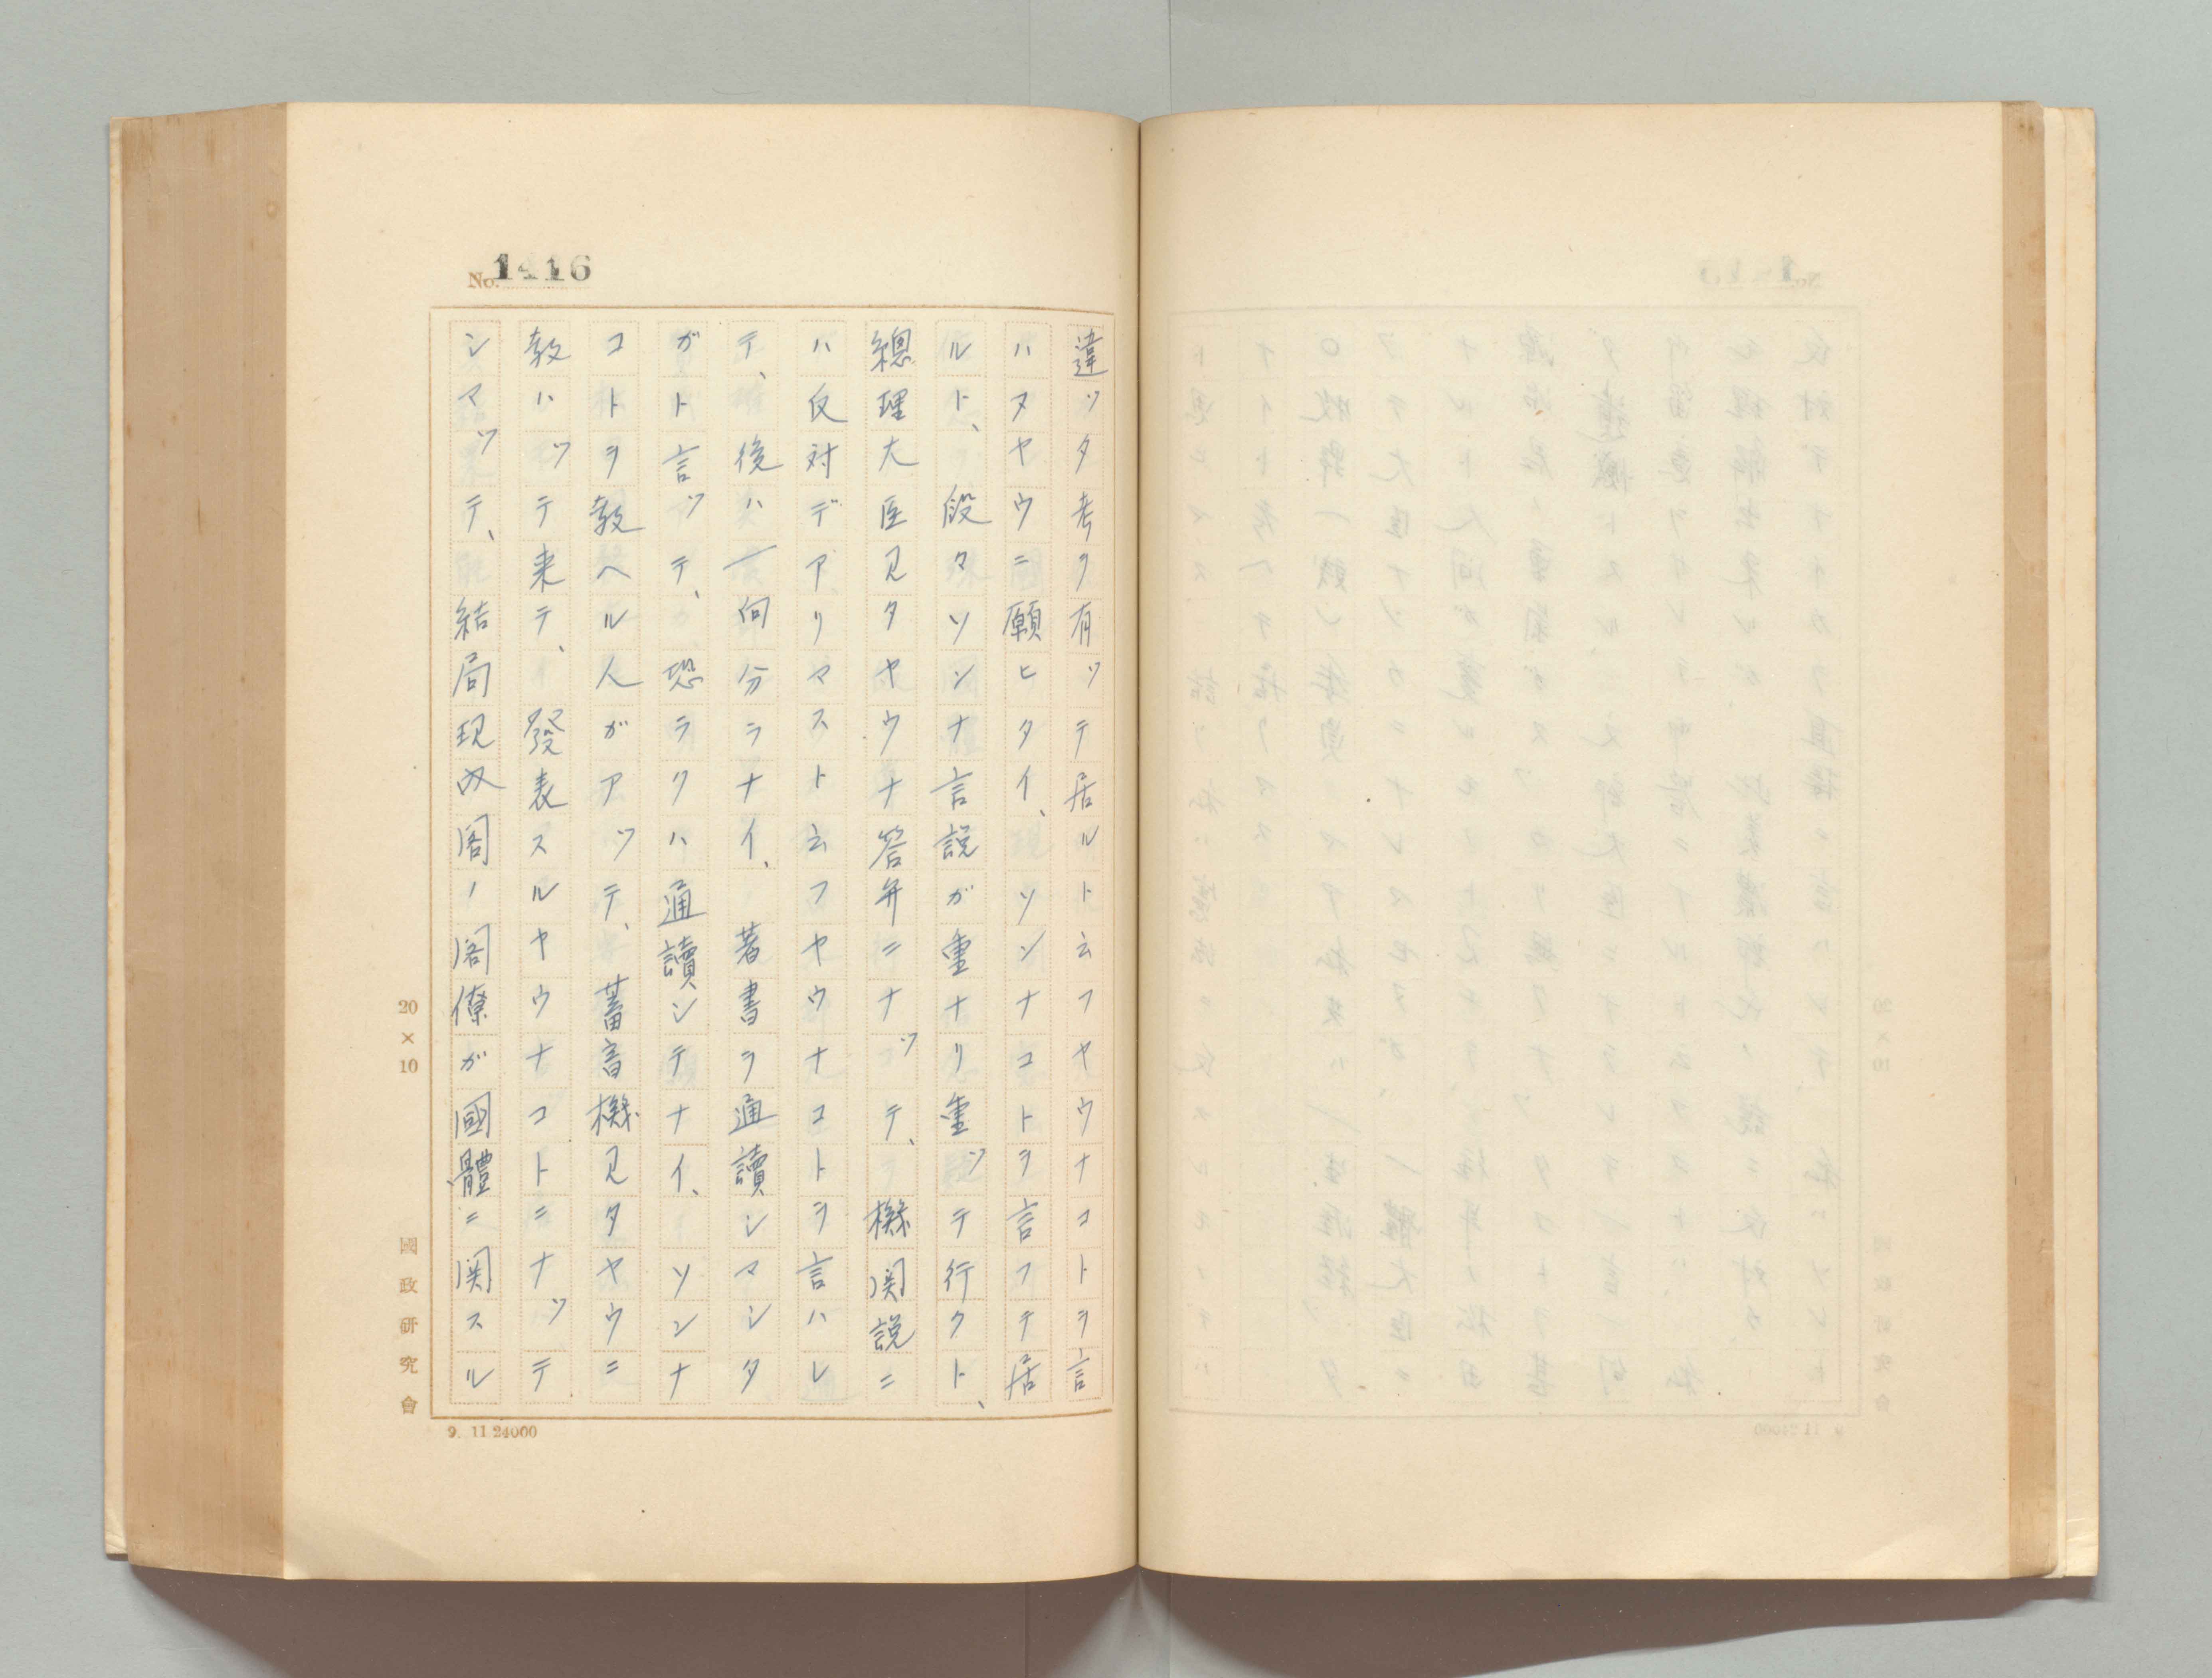 No. 1416
違ッタ考ヲ有ッテ居ルト云フヤウナコトヲ言
ハヌヤウニ願ヒタイ、ソンナコトヲ言フテ居
ルト、段々ソンナ言説ガ重ナリ重ッテ行クト、
總理大臣見タヤウナ答弁ニナッテ、機関説ニ
ハ反対デアリマスト云フヤウナコトヲ言ハレ
テ、後ハ一向分ラナイ、著書ヲ通讀シマシタ
ガト言ッテ、恐ラクハ通讀シテナイ、ソンナ
コトヲ教ヘル人ガアッテ、蓄音機見タヤウニ
教ハッテ来テ、發表スルヤウナコトニナッテ
シマッテ、結局現内閣ノ閣僚ガ國體ニ関スル
20×10
國政研究會
9. 11 24000